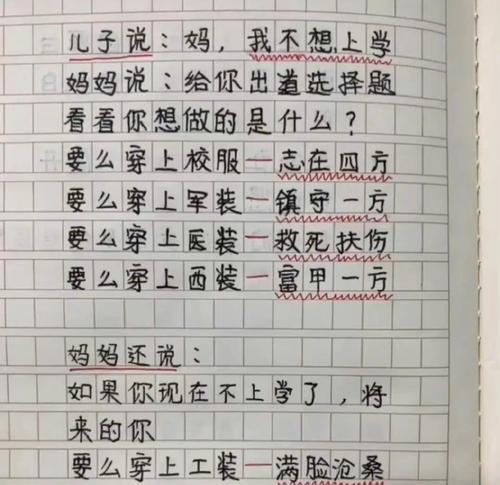 儿子说：妈，我不想上学
妈妈说：给你出道选择题
看看你想做的是什么？
要么穿上校服一志在四方
要么穿上军装一镇守一方
要么穿上医装一救死扶伤
要么穿上西装一富甲一方
妈妈还说：
如果你现在不上学了，将
来的你
要么穿上工装一满脸沧桑